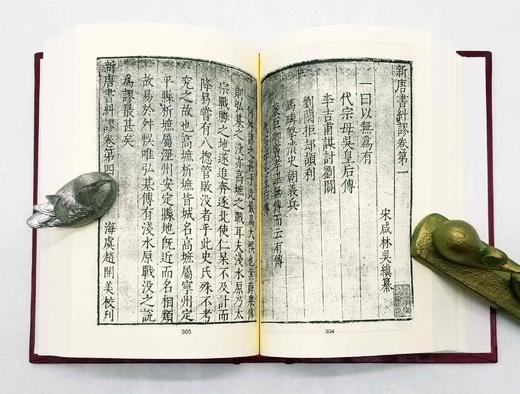 新唐書糾謬卷第一
宋咸林吳縝纂
一曰以無爲有
代宗母吳皇后傳
李吉甫謀討劉闢
劉蘭拒却頡利
馬璘擊潰史朝義兵
無傳而云有傳
304
則弘基之没在高墌之戰耳夫淺水原乃太
宗戰勝之地遂追奔逐北使仁杲不及計而
降曷嘗有八總管敗没者乎此史氏殊不考
究之故也高墌析墌皆城名高墌屬寧州定
平縣析墌屬涇州安定縣地旣近而名相類
故易於舛悞唯弘基傳有淺水原戰没之說
爲謬最甚矣
新唐書糾謬卷第四
海虞趙開美校刋
305